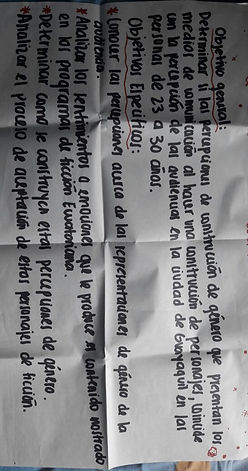 Objetivo general:
Determinar si las percepciones de construcción de género que presentan los
medios de comunicación al hacer una construcción de personajes, coincide
con la percepción de las audiencias en la ciudad de Guayaquil en las
personas de 23 a 30 años.
Objetivos Específicos:
*Conocer las percepciones acerca de las representaciones de género de la
audiencia.
*Analizar los sentimientos o emociones que le produce el contenido mostrado
en los programas de ficción Ecuatoriana.
*Determinar como se construyen estas percepciones de género.
*Analizar el proceso de aceptación de estos personajes de ficción.